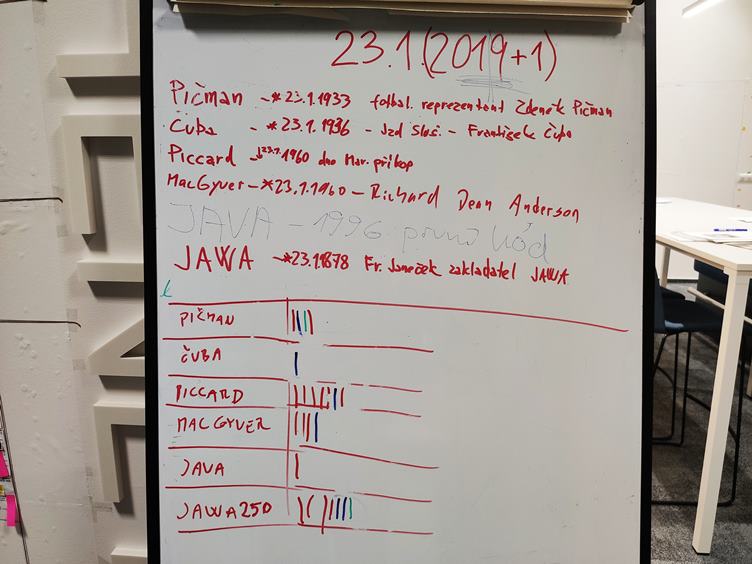 23.1.(2019+1)
Pičman - *23.1.1933 fotbal. reprezentant Zdeněk Pičman
Čuba - *23.1.1936 - Jzd Sluš. - František Čuba
Piccard - 23.1.1960 dno Mar. příkop
MacGyver - *23.1.1960 - Richard Dean Anderson
JAVA - 1996 první kód
JAWA - *23.1.1878 Fr. Janeček zakladatel JAWA
PIČMAN
ČUBA
PICCARD
MACGYVER
JAVA
JAWA 250